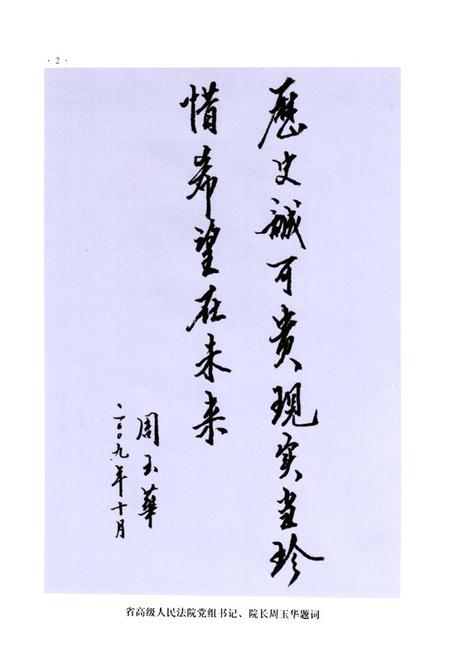 · 2 ·
歷史誠可貴現实当珍
惜希望在未来
周玉華
二〇〇九年十月
省高级人民法院党组书记、院长周玉华题词